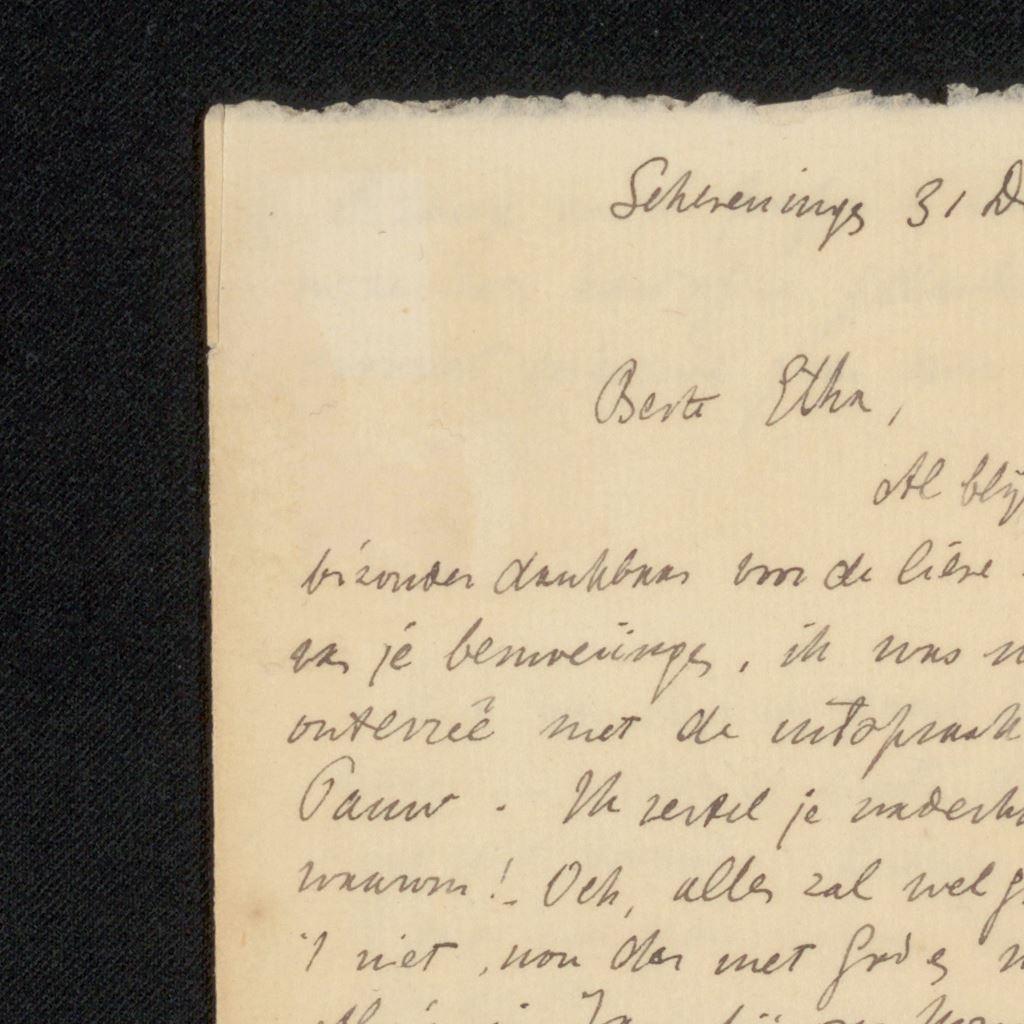 Scheveningen 31 D
Beste Etha,
Al blij
bizonder dankbaar voor de lieve
van je bemoeiingen, ik was
ontevreê met de uitspraak
Pauw. Ik vertel je naderh
waarom! Och, alles zal wel g
't niet, nou dan met